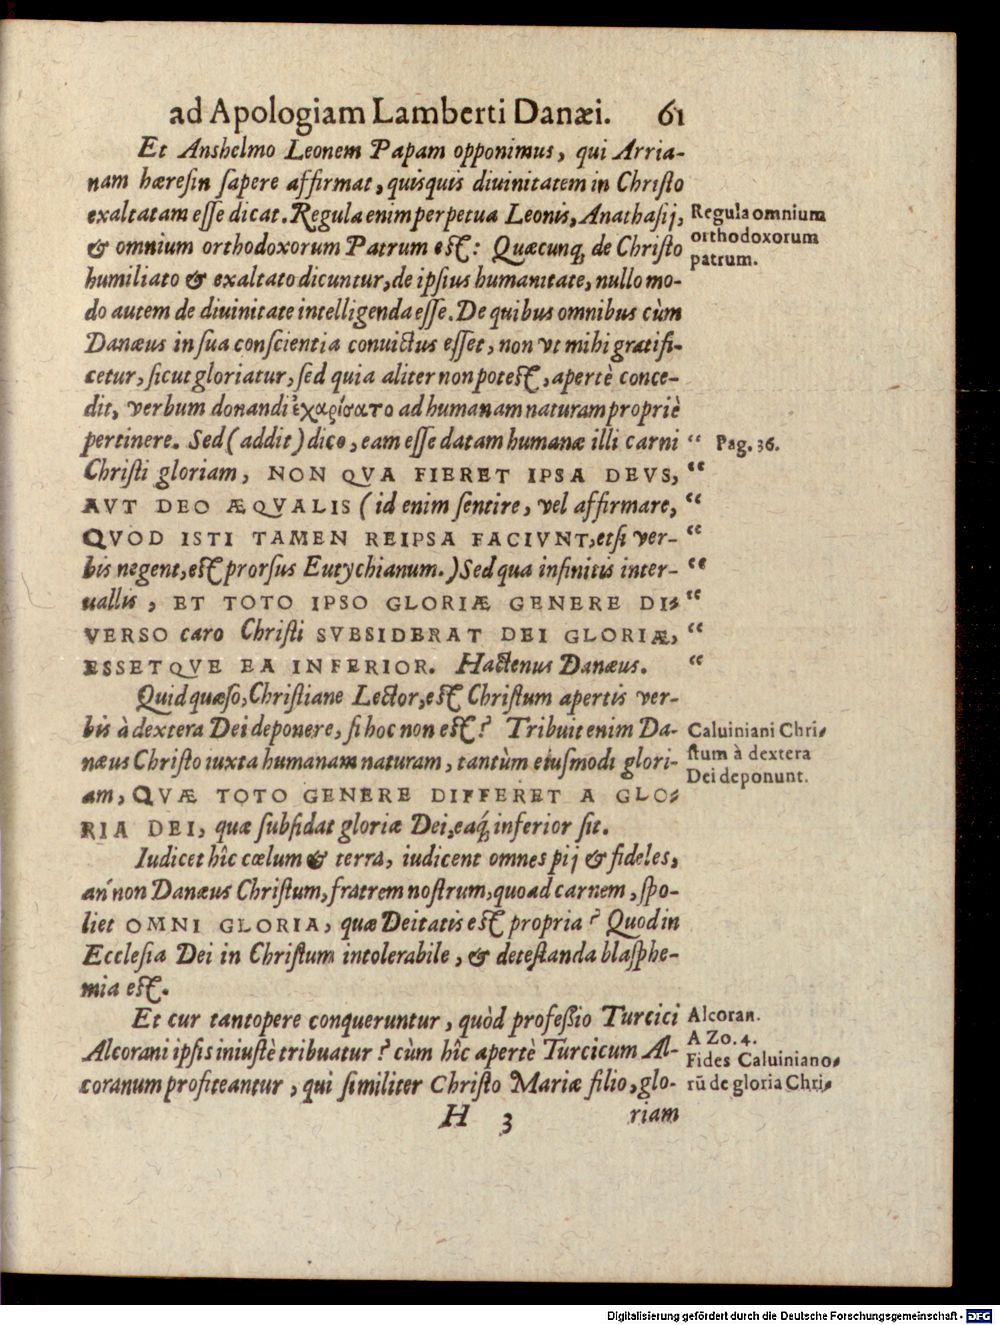 ad Apologiam Lamberti Danæi. 61
Et Anshelmo Leonem Papam opponimus, qui Arria-
nam hæresin sapere affirmat, quisquis diuinitatem in Christo
exaltatam esse dicat. Regula enim perpetua Leonis, Anathasij,
Regula omnium
& omnium orthodoxorum Patrum est: Quæcunq; de Christo
orthodoxorum
patrum.
humiliato & exaltato dicuntur, de ipsius humanitate, nullo mo-
do autem de diuinitate intelligenda esse. De quibus omnibus cùm
Danæus in sua conscientia conuictus esset, non vt mihi gratifi-
cetur, sicut gloriatur, sed quia aliter non potest, apertè conce-
dit, verbum donandi ἐχαρίσατο ad humanam naturam propriè
pertinere. Sed (addit) dico, eam esse datam humanæ illi carni
“ Pag. 36.
Christi gloriam, NON QVA FIERET IPSA DEVS, “
AVT DEO ÆQVALIS (id enim sentire, vel affirmare, “
QVOD ISTI TAMEN REIPSA FACIVNT, etsi ver- “
bis negent, est prorsus Eutychianum.) Sed qua infinitis inter- “
uallis, ET TOTO IPSO GLORIÆ GENERE DI- “
VERSO caro Christi SVBSIDERAT DEI GLORIÆ, “
ESSETQVE EA INFERIOR. Hactenus Danæus. “
Quid quæso, Christiane Lector, est Christum apertis ver-
bis à dextera Dei deponere, si hoc non est? Tribuit enim Da-
Caluiniani Chri-
næus Christo iuxta humanam naturam, tantùm eiusmodi glori-
stum à dextera
Dei deponunt.
am, QVÆ TOTO GENERE DIFFERET A GLO-
RIA DEI, quæ subsidat gloriæ Dei, eaq; inferior sit.
Iudicet hîc cœlum & terra, iudicent omnes pij & fideles,
an non Danæus Christum, fratrem nostrum, quoad carnem, spo-
liet OMNI GLORIA, quæ Deitatis est propria? Quod in
Ecclesia Dei in Christum intolerabile, & detestanda blasphe-
mia est.
Et cur tantopere conqueruntur, quòd professio Turcici
Alcoran.
AZo. 4.
Alcorani ipsis iniustè tribuatur? cùm hîc apertè Turcicum Al-
Fides Caluiniano-
coranum profiteantur, qui similiter Christo Mariæ filio, glo-
rū de gloria Chri-
H 3 riam
Digitalisierung gefördert durch die Deutsche Forschungsgemeinschaft - DFG